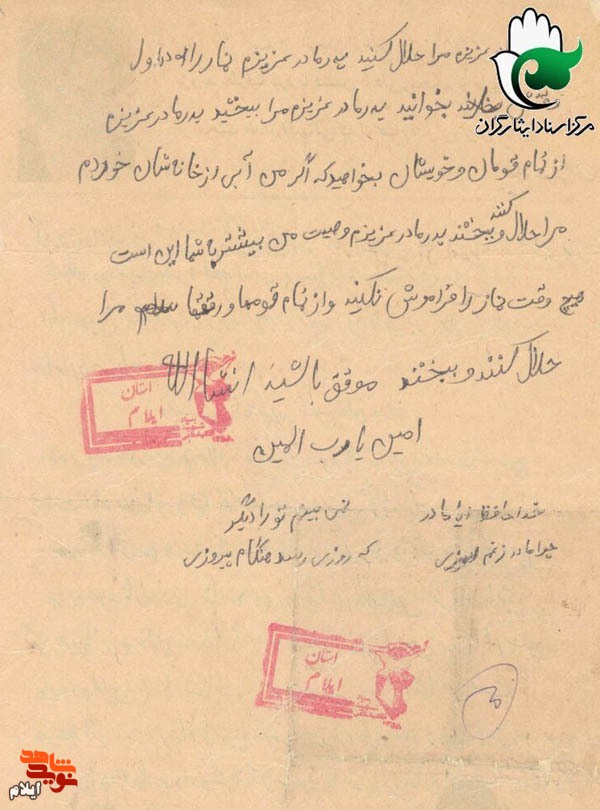 عزیزم مرا حلال کنید پدر مادر عزیزم نماز را در اول
بخوانید پدر مادر عزیزم مرا ببخشید پدر مادر عزیزم
از تمام قومان و خویشان بخواهید که اگر من آبی از خانه‌شان خوردم
مرا حلال کنند و ببخشند پدر مادر عزیزم وصیت من بیشتر با شما این است
هیچ وقت نماز را فراموش نکنید و از تمام قومها و رفقها سلام مرا
حلال کنند و ببخشند موفق باشید انشاالله
امین یا رب المین
خدا حافظ ای مادر نمی بینم تو را دیگر
که روزی رسد هنگام پیروزی
استان
ایلام
استان
ایلام
مرکز اسناد ایثارگران
نوید شاهد
ایلام